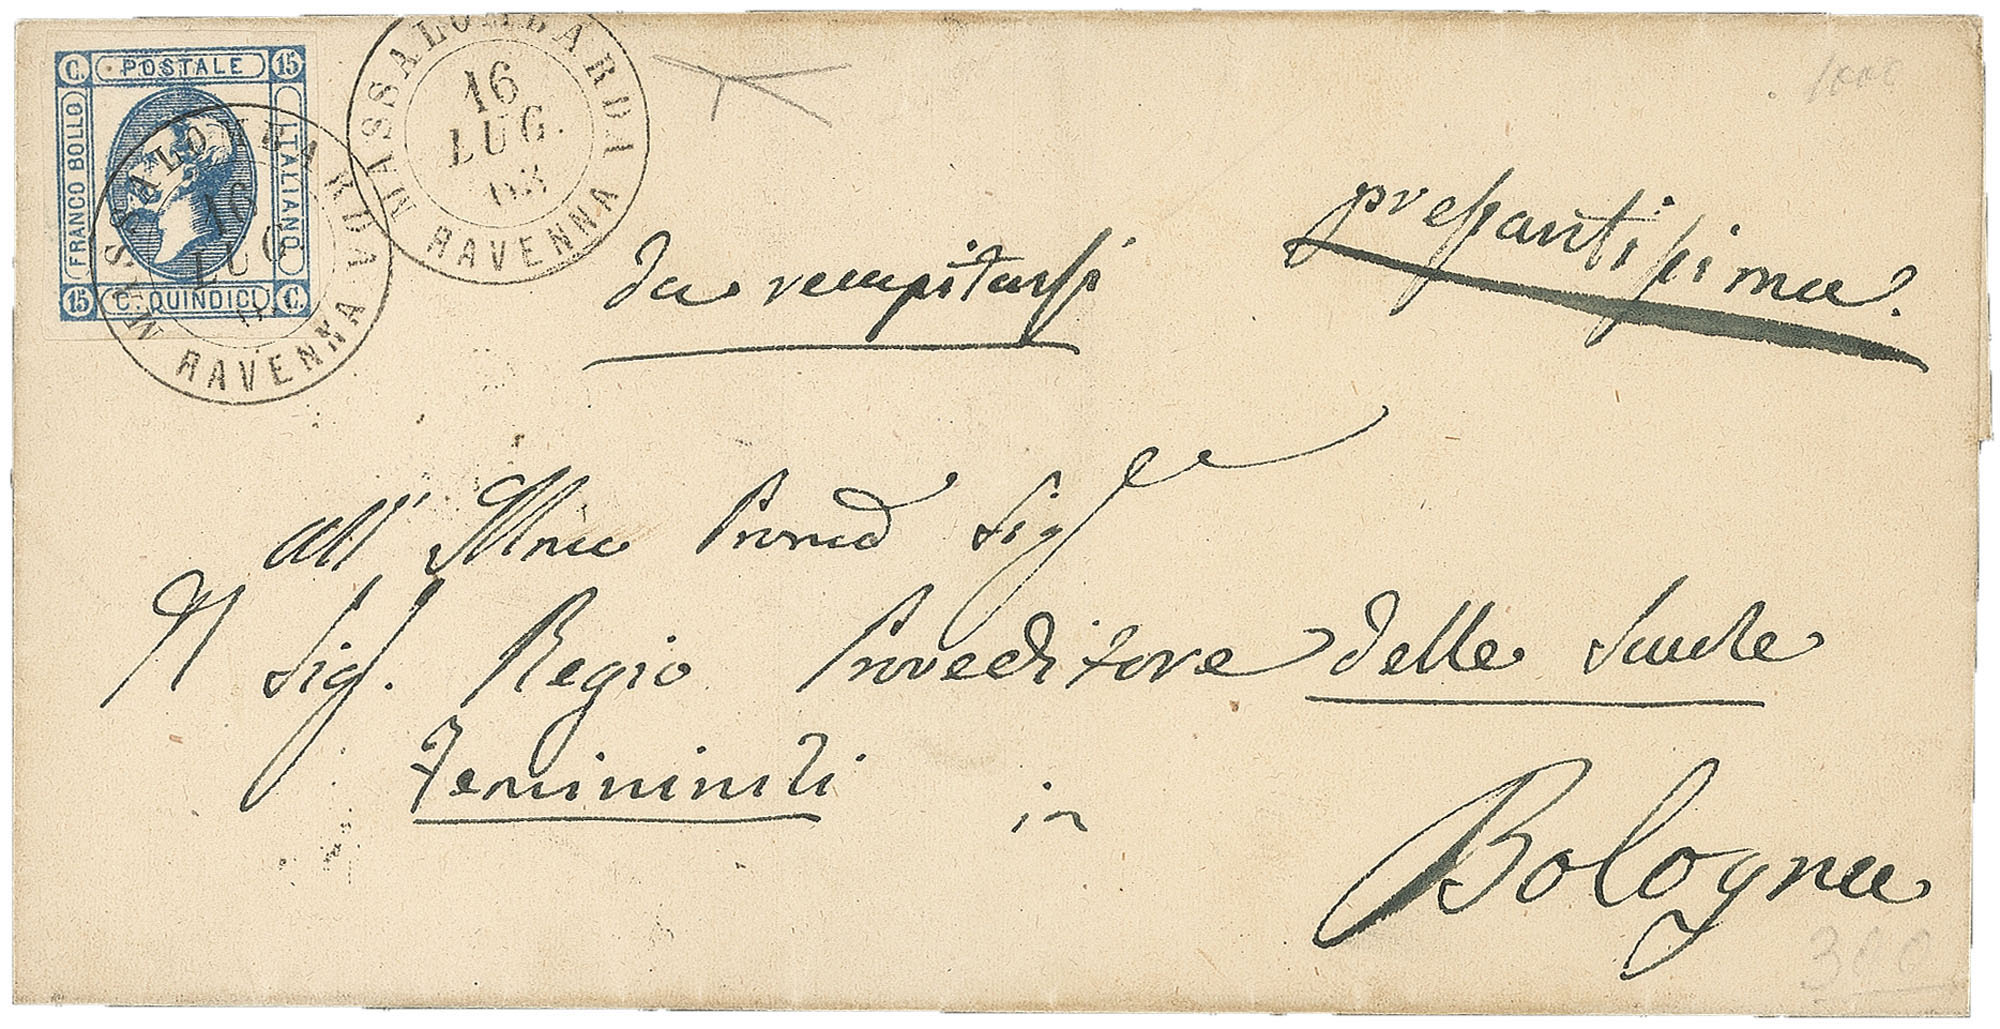 C. POSTALE 15
FRANCO BOLLO
ITALIANO
15 C. QUINDICI C.
MASSALOMBARDA
16
LUG.
63
RAVENNA
MASSALOMBARDA
16
LUG
RAVENNA
da recapitarsi pressantissima
all' Illma Sig
Al Sig. Regio Proveditore delle Scuole
in
Bologna
300